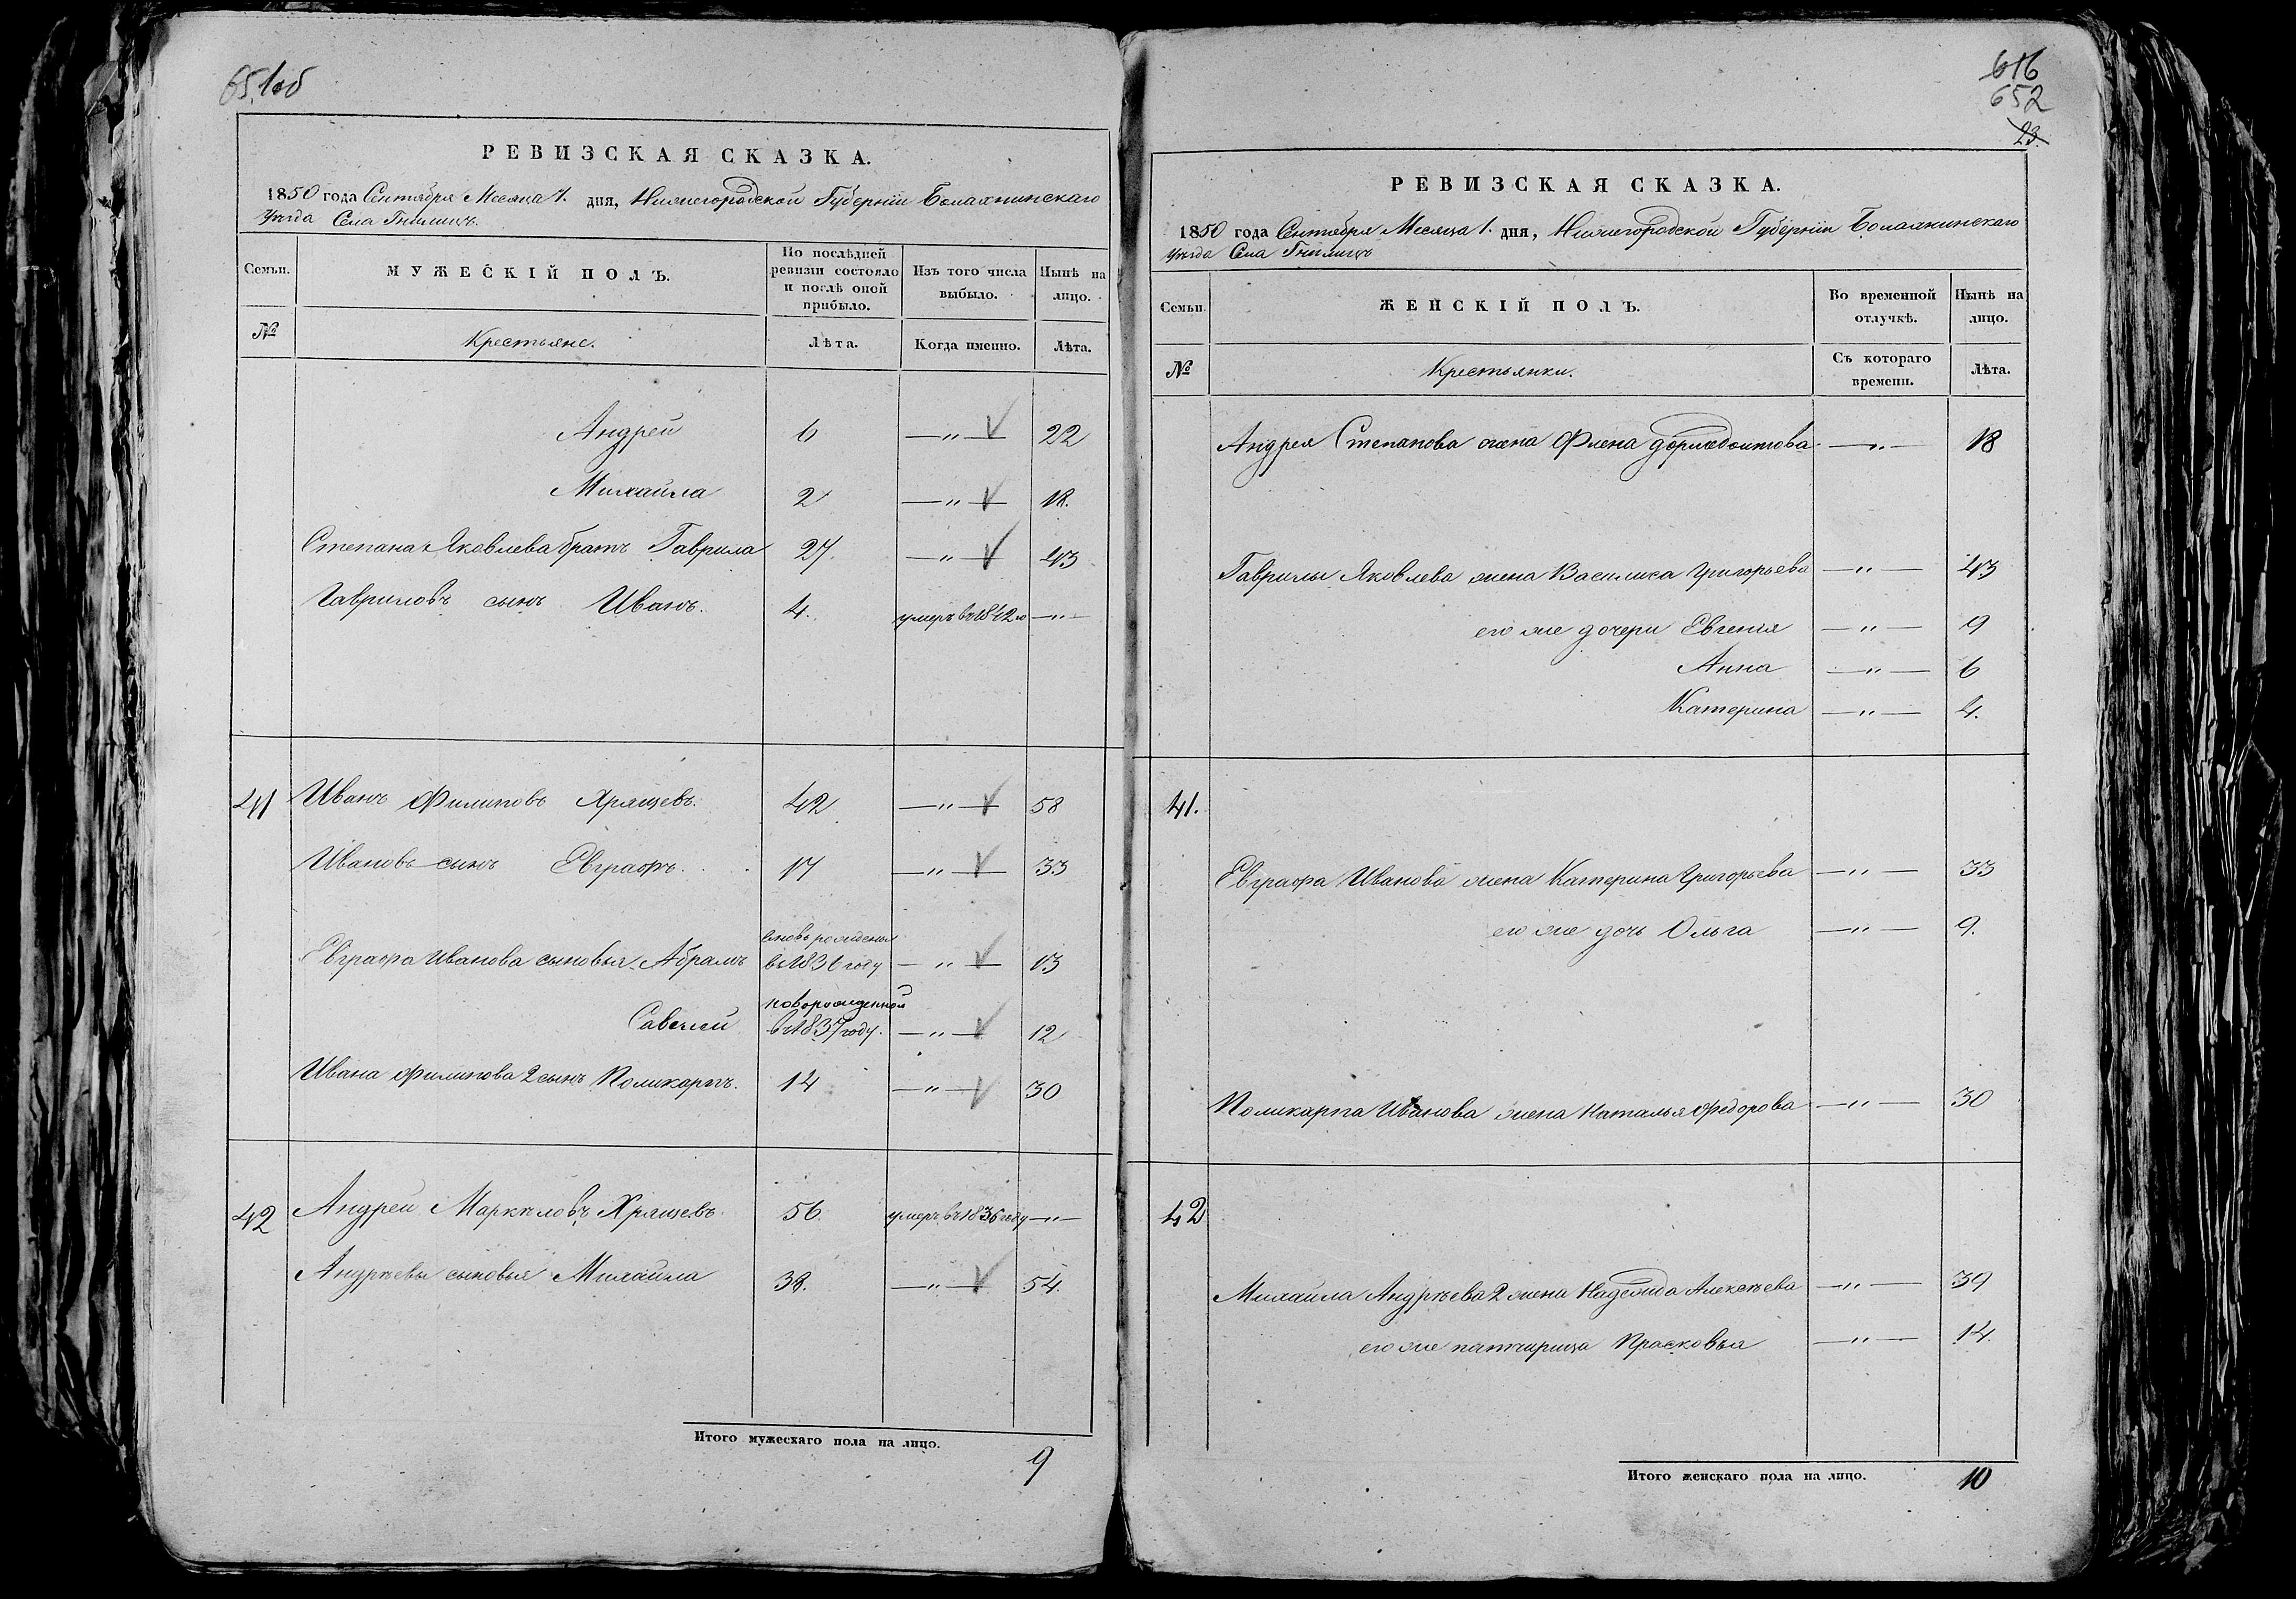 651об
РЕВИЗСКАЯ СКАЗКА.
1850 года Сентября Месяца 1. дня, Нижегородской Губернiи Болахнинскаго
Уѣзда Села Гнилицъ.
Семьи.
МУЖЕСКІЙ ПОЛЪ.
По послѣдней ревизіи состояло и послѣ оной прибыло.
Изъ того числа выбыло.
Нынѣ на лицо.
№
Крестьяне.
Лѣта.
Когда именно.
Лѣта.
Андрей 6 —„— 22
Михайла 2 —„— 18.
Степана Яковлева братъ Гаврила 27. —„— 43
Гавриловъ сынъ Иванъ. 4. умеръ въ 1842 —„—
41 Иванъ Филиповъ Хрящевъ. 42 —„— 58
Ивановъ сынъ Евграфъ. 17 —„— 33
Евграфа Иванова сыновья Абрамъ вновь рожденыи въ 1836 году —„— 13
Савелей новорожденной въ 1837 году. —„— 12
Ивана Филипова 2 сынъ Поликарпъ. 14 —„— 30
42 Андрей Маркеловъ Хрящевъ. 56. умеръ въ 1836 году —„—
Андрѣевы сыновья Михайла 38. —„— 54.
Итого мужескаго пола на лицо. 9
616
652
23.
РЕВИЗСКАЯ СКАЗКА.
1850 года Сентября Месяца 1. дня, Нижегородской Губернiи Болахнинскаго
Уѣзда Села Гнилицъ
Семьи
ЖЕНСКІЙ ПОЛЪ.
Во временной отлучкѣ.
Нынѣ на лицо.
№
Крестьянки.
Съ котораго времени.
Лѣта.
Андрея Степанова жена Флена Дормедонтова —„— 18
Гаврилы Яковлева жена Василиса Григорьева —„— 43
его же дочери Евгенiя —„— 9
Анна —„— 6
Катерина —„— 4.
41.
Евграфа Иванова жена Катерина Григорьева —„— 33
его же дочь Ольга —„— 9.
Поликарпа Иванова жена Наталья Федорова —„— 30
42
Михаила Андрѣева 2 жена Надежда Алексѣева —„— 39
его же патчирица Прасковья —„— 14.
Итого женскаго пола на лицо. 10